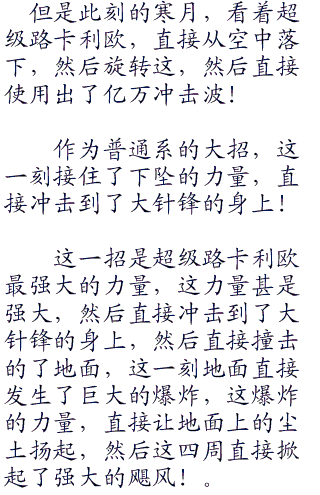 但是此刻的寒月，看着超
级路卡利欧，直接从空中落
下，然后旋转这，然后直接
使用出了亿万冲击波！
作为普通系的大招，这
一刻接住了下坠的力量，直
接冲击到了大针锋的身上！
这一招是超级路卡利欧
最强大的力量，这力量甚是
强大，然后直接冲击到了大
针锋的身上，然后直接撞击
的了地面，这一刻地面直接
发生了巨大的爆炸，这爆炸
的力量，直接让地面上的尘
土扬起，然后这四周直接掀
起了强大的飓风！。